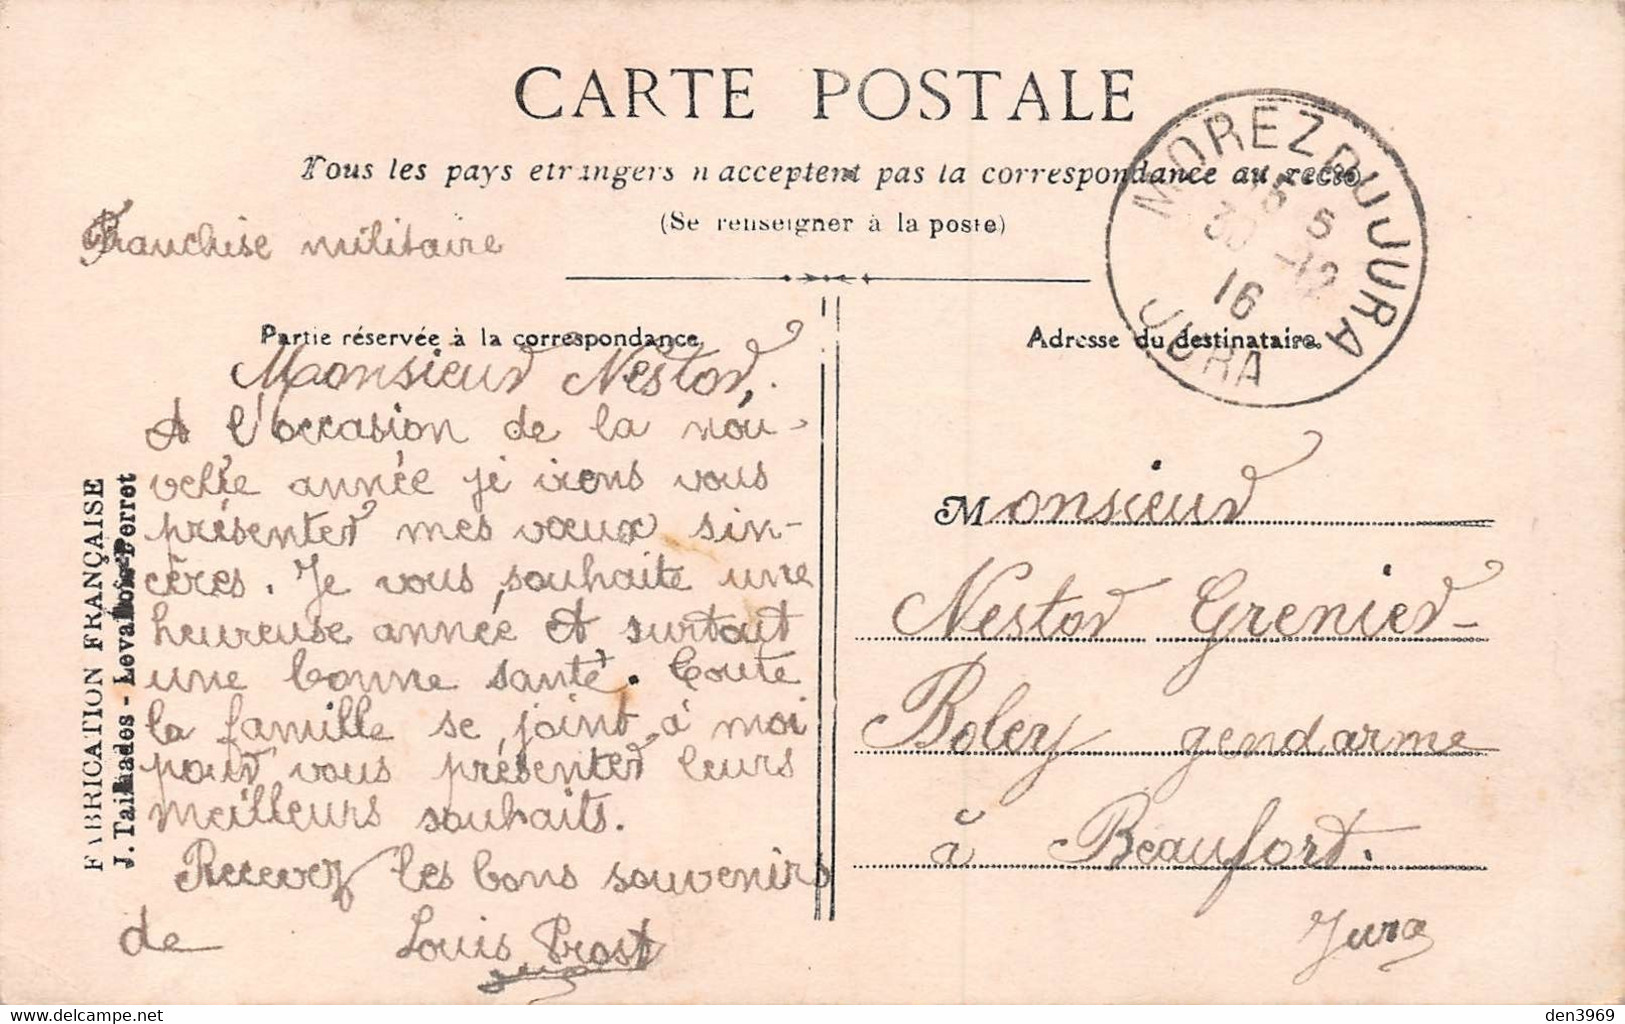 CARTE POSTALE
Tous les pays etrangers n'acceptent pas la correspondance au recto
(Se renseigner à la poste)
Franchise militaire
MOREZ DU JURA
15 5
30 -12
16
JURA
Partie réservée à la correspondance
Adresse du destinataire
Monsieur Nestor,
A l'occasion de la nou-
velle année je irons vous
présenter mes vœux sin-
cères. Je vous souhaite une
heureuse année et surtout
une bonne santé. Toute
la famille se joint à moi
pour vous présenter leurs
meilleurs souhaits.
Recevez les bons souvenirs
de Louis Prost
Monsieur
Nestor Grenier-
Boley gendarme
à Beaufort.
Jura
FABRICATION FRANÇAISE
J. Tailhades - Levallois-Perret
den3969